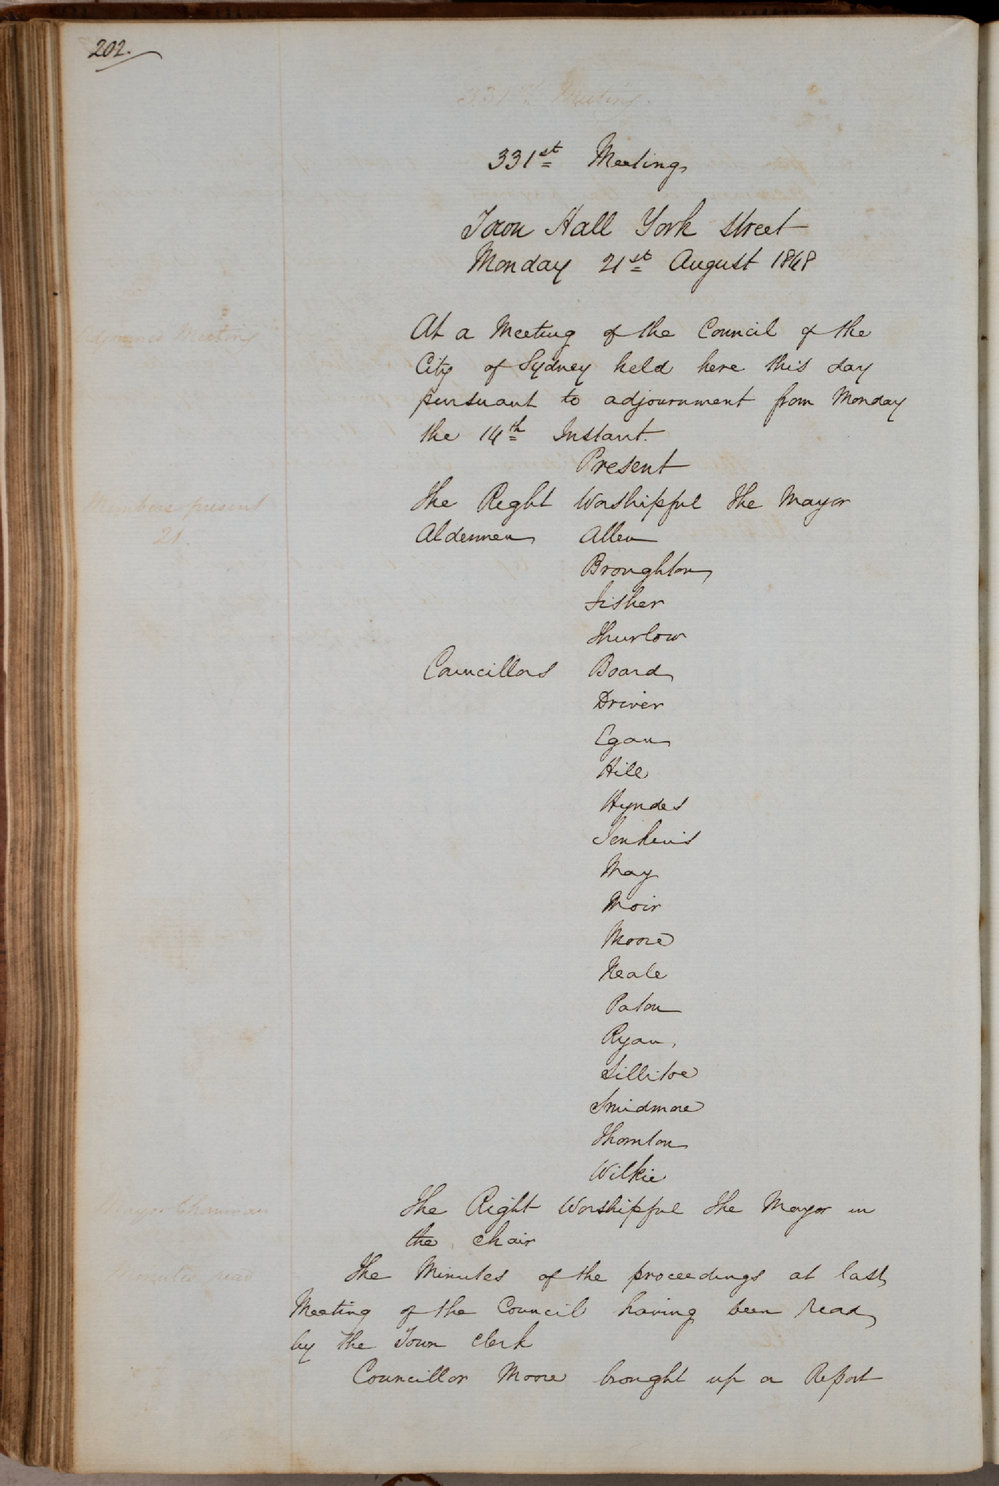 202.
331st Meeting
331st Meeting
Town Hall York Street
Monday 21st August 1848
Adjourned Meeting
At a Meeting of the Council of the
City of Sydney held here this day
pursuant to adjournment from Monday
the 14th Instant.
Present
Members present
21.
The Right Worshipful The Mayor
Aldermen Allen
Broughton
Fisher
Thurlow
Councillors Board
Driver
Egan
Hill
Hyndes
Jenkins
May
Moir
Moore
Neale
Paton
Ryan,
Sillitoe
Smidmore
Thornton
Wilkie
Mayor Chairman
The Right Worshipful The Mayor in
the chair
Minutes read
The Minutes of the proceedings at last
Meeting of the Council having been read
by the Town Clerk
Councillor Moore brought up a Report